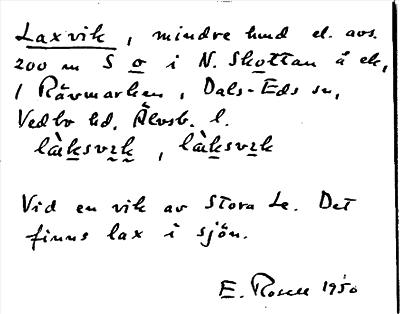 Laxvik, mindre hmd el. avs.
200 m S o i N. Skottan å ek,
1 Rävmarken, Dals-Eds sn,
Vedbo hd. Älvsb. l.
làksvɪk, làksvɪk
Vid en vik av Stora Le. Det
finns lax i sjön.
E. Rosell 1950